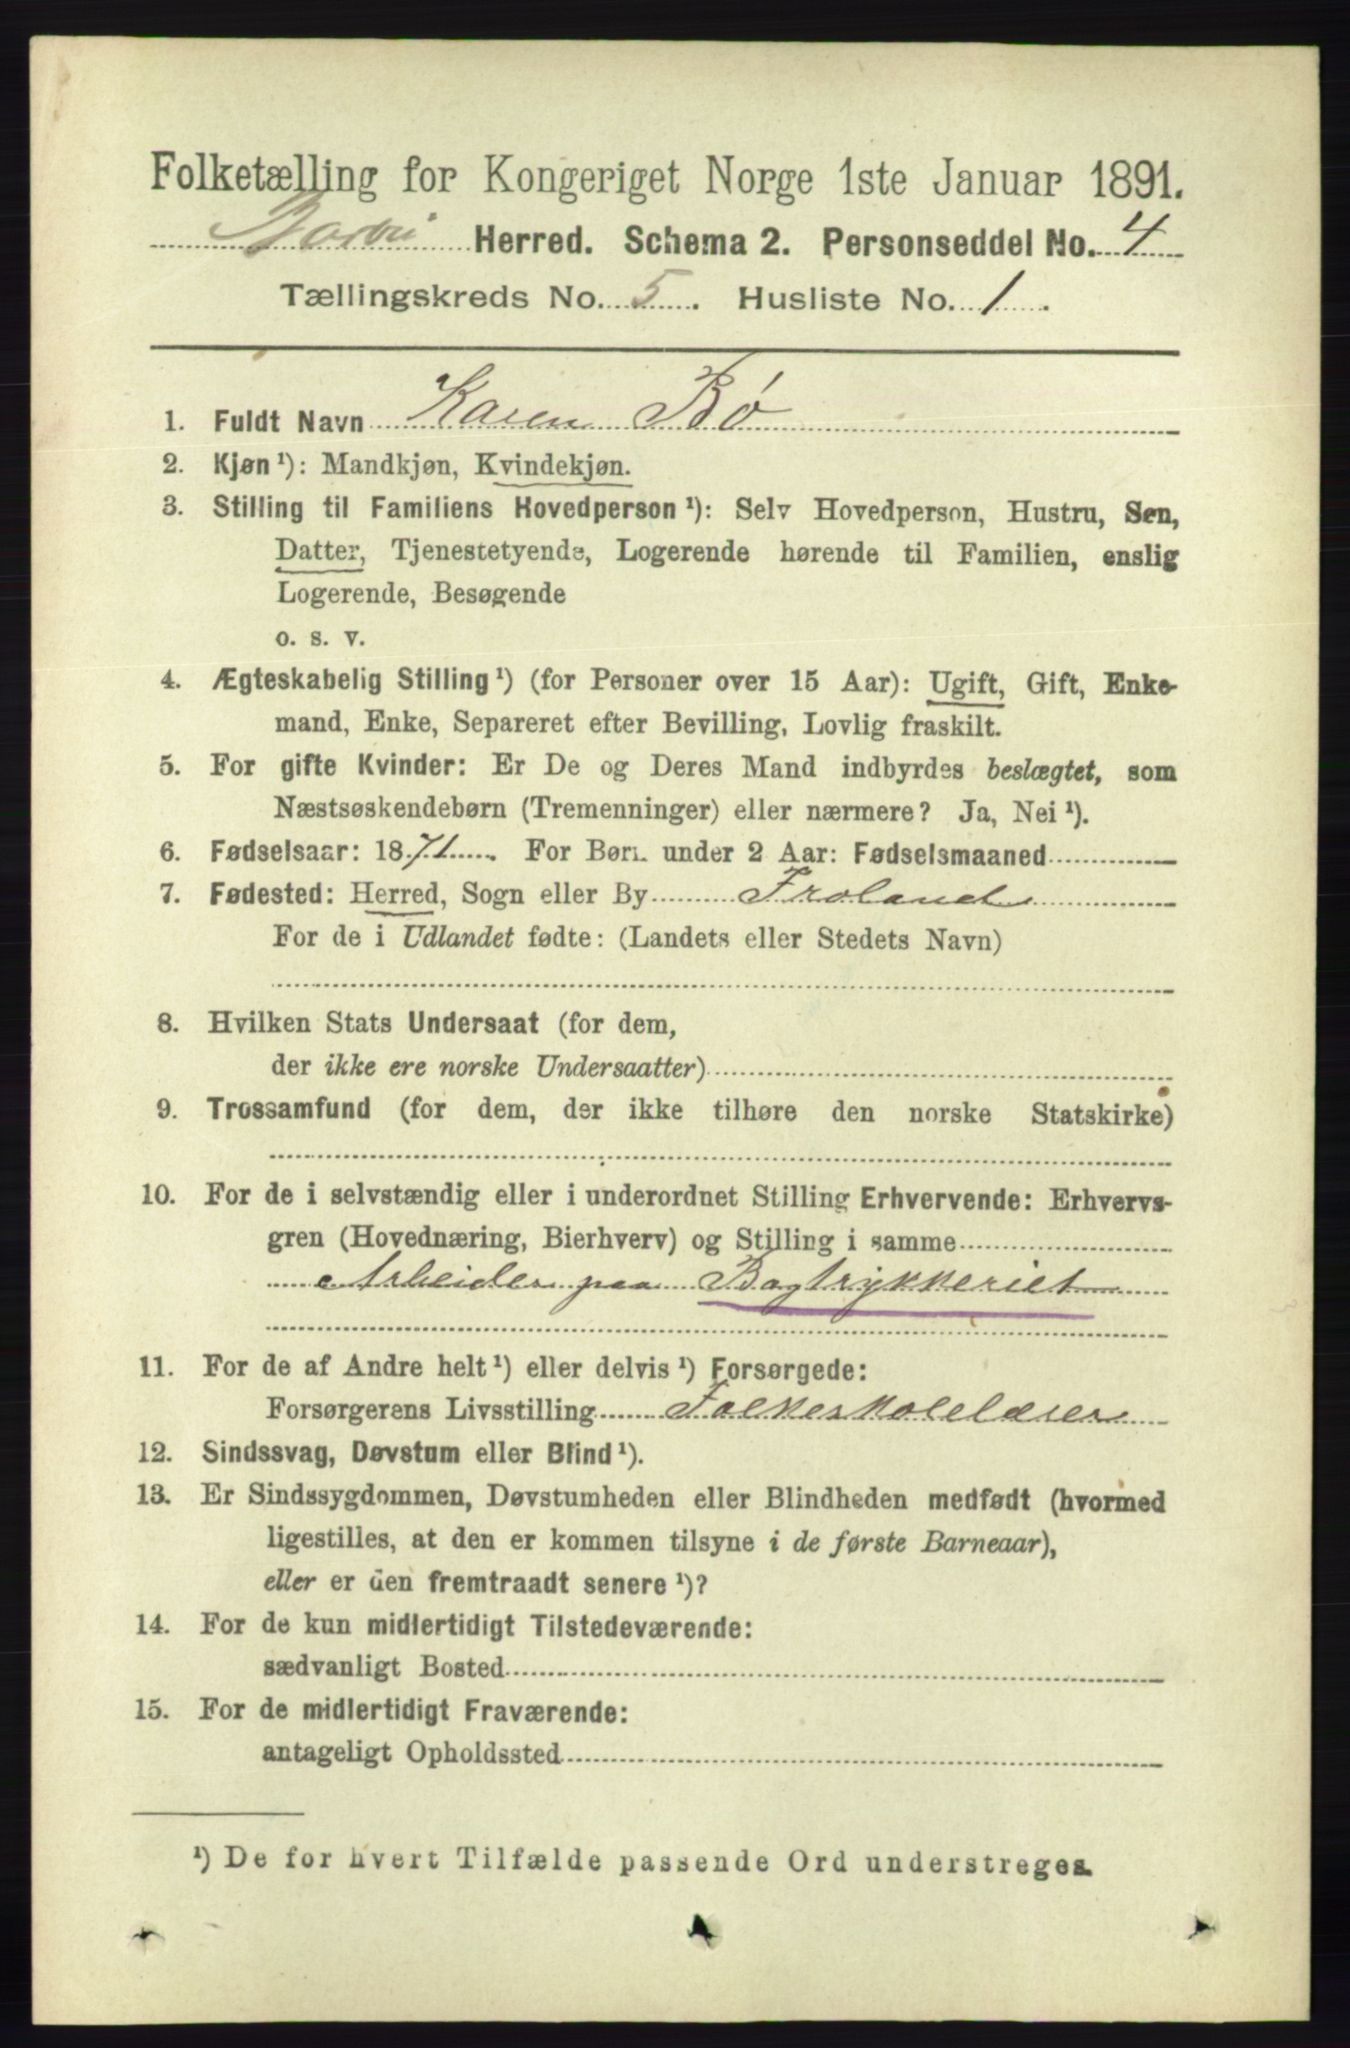 Folketælling for Kongeriget Norge 1ste Januar 1891.
Barbu Herred. Schema 2. Personseddel No. 4
Tællingskreds No. 5. Husliste No. 1.
1. Fuldt Navn Karen Bø
2. Kjøn ¹): Mandkjøn, Kvindekjøn.
3. Stilling til Familiens Hovedperson ¹): Selv Hovedperson, Hustru, Søn,
Datter, Tjenestetyende, Logerende hørende til Familien, enslig
Logerende, Besøgende
o. s. v.
4. Ægteskabelig Stilling ¹) (for Personer over 15 Aar): Ugift, Gift, Enke-
mand, Enke, Separeret efter Bevilling, Lovlig fraskilt.
5. For gifte Kvinder: Er De og Deres Mand indbyrdes beslægtet, som
Næstsøskendebørn (Tremenninger) eller nærmere? Ja, Nei ¹).
6. Fødselsaar: 1871. For Børn under 2 Aar: Fødselsmaaned
7. Fødested: Herred, Sogn eller By Froland
For de i Udlandet fødte: (Landets eller Stedets Navn)
8. Hvilken Stats Undersaat (for dem,
der ikke ere norske Undersaatter)
9. Trossamfund (for dem, der ikke tilhøre den norske Statskirke)
10. For de i selvstændig eller i underordnet Stilling Erhvervende: Erhvervs-
gren (Hovednæring, Bierhverv) og Stilling i samme
Arbeider paa Bogtrykkeriet
11. For de af Andre helt ¹) eller delvis ¹) Forsørgede:
Forsørgerens Livsstilling Folkeskolelærer
12. Sindssvag, Døvstum eller Blind ¹).
13. Er Sindssygdommen, Døvstumheden eller Blindheden medfødt (hvormed
ligestilles, at den er kommen tilsyne i de første Barneaar),
eller er den fremtraadt senere ¹)?
14. For de kun midlertidigt Tilstedeværende:
sædvanligt Bosted
15. For de midlertidigt Fraværende:
antageligt Opholdssted
¹) De for hvert Tilfælde passende Ord understreges.